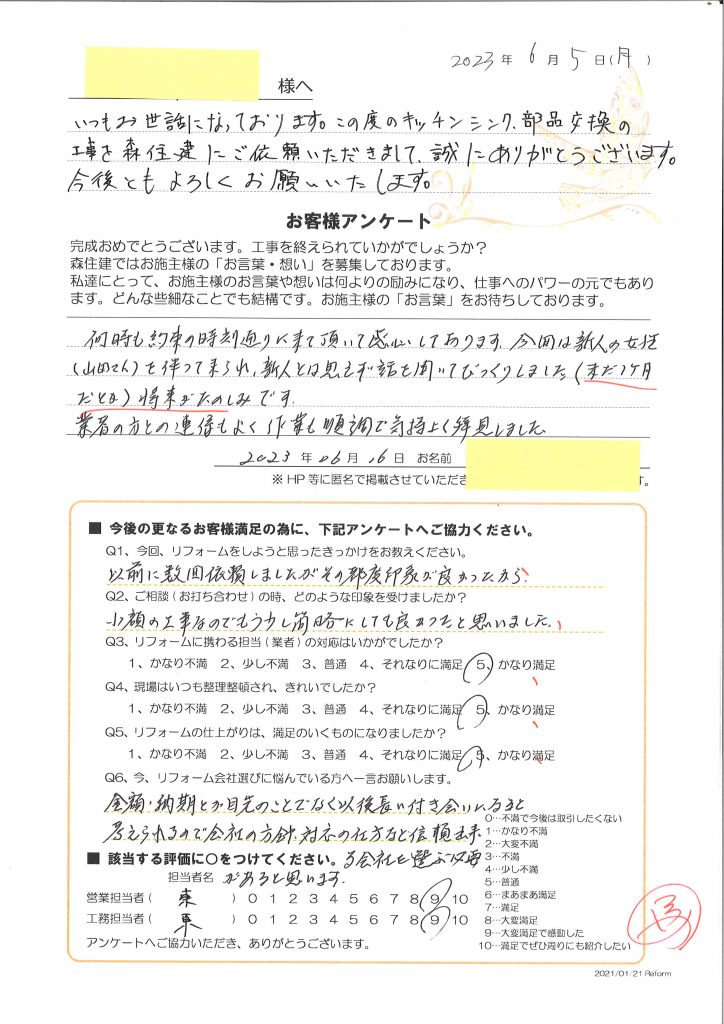 2023年 6月 5日(月)
様へ
いつもお世話になっております。この度のキッチンシンク、部品交換の
工事を森住建にご依頼いただきまして、誠にありがとうございます。
今後ともよろしくお願いいたします。
お客様アンケート
完成おめでとうございます。工事を終えられていかがでしょうか？
森住建ではお施主様の「お言葉・想い」を募集しております。
私達にとって、お施主様のお言葉や想いは何よりの励みになり、仕事へのパワーの元でもあり
ます。どんな些細なことでも結構です。お施主様の「お言葉」をお待ちしております。
何時も約束の時刻通りに来て頂いて感心しております。今回は新人の女性
(山田さん)を伴って来られ、新人とは思えず話を聞いてびっくりしました(まだ1ヶ月
だとか)将来がたのしみです。
業者の方との連係もよく作業も順調で気持よく拝見しました。
2023年 06月 16日 お名前
※HP等に匿名で掲載させていただき す。
■ 今後の更なるお客様満足の為に、下記アンケートへご協力ください。
Q1、今回、リフォームをしようと思ったきっかけをお教えください。
以前に数回依頼しましたがその都度印象が良かったから、
Q2、ご相談(お打ち合わせ)の時、どのような印象を受けましたか？
小額の工事なのでもう少し簡略にしても良かったと思いました。
Q3、リフォームに携わる担当(業者)の対応はいかがでしたか？
1、かなり不満 2、少し不満 3、普通 4、それなりに満足 5、かなり満足
Q4、現場はいつも整理整頓され、きれいでしたか？
1、かなり不満 2、少し不満 3、普通 4、それなりに満足 5、かなり満足
Q5、リフォームの仕上がりは、満足のいくものになりましたか？
1、かなり不満 2、少し不満 3、普通 4、それなりに満足 5、かなり満足
Q6、今、リフォーム会社選びに悩んでいる方へ一言お願いします。
金額・納期とか目先のことでなく以後長い付き合いになると
考えられるので会社の方針、対応の仕方など信頼出来
る会社を選ぶ必要
があると思います。
■ 該当する評価に○をつけてください。
担当者名
営業担当者( 東 ) 0 1 2 3 4 5 6 7 8 9 10
工務担当者( 東 ) 0 1 2 3 4 5 6 7 8 9 10
アンケートへご協力いただき、ありがとうございます。
0…不満で今後は取引したくない
1…かなり不満
2…大変不満
3…不満
4…少し不満
5…普通
6…まあまあ満足
7…満足
8…大変満足
9…大変満足で感動した
10…満足でぜひ周りにも紹介したい
2021/01/21 Reform